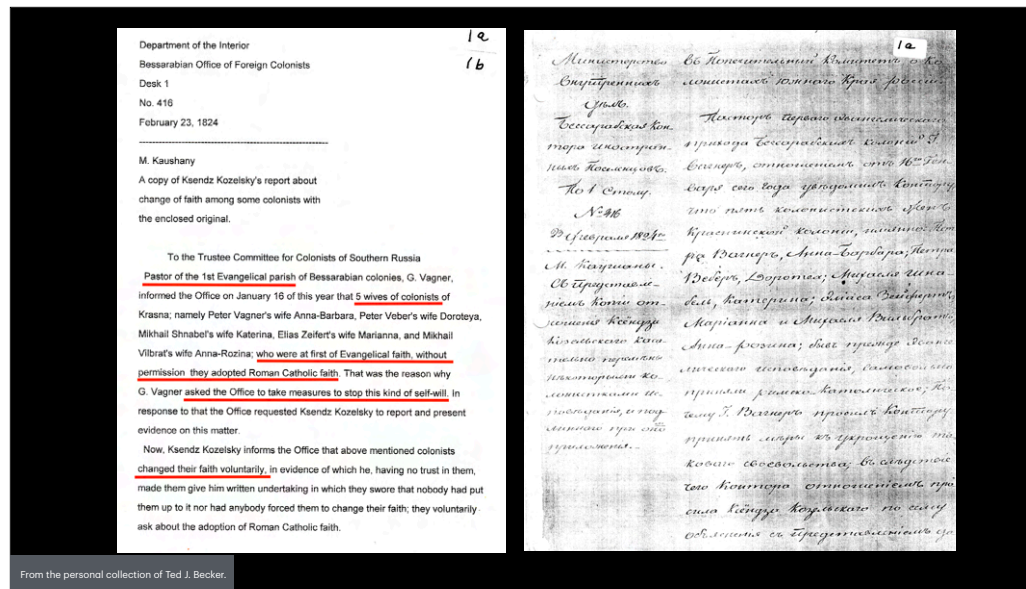 1a
1b
Department of the Interior
Bessarabian Office of Foreign Colonists
Desk 1
No. 416
February 23, 1824
--------------------------------------------------
M. Kaushany
A copy of Ksendz Kozelsky's report about
change of faith among some colonists with
the enclosed original.
To the Trustee Committee for Colonists of Southern Russia
Pastor of the 1st Evangelical parish of Bessarabian colonies, G. Vagner,
informed the Office on January 16 of this year that 5 wives of colonists of
Krasna; namely Peter Vagner's wife Anna-Barbara, Peter Veber's wife Doroteya,
Mikhail Shnabel's wife Katerina, Elias Zeifert's wife Marianna, and Mikhail
Vilbrat's wife Anna-Rozina; who were at first of Evangelical faith, without
permission they adopted Roman Catholic faith. That was the reason why
G. Vagner asked the Office to take measures to stop this kind of self-will. In
response to that the Office requested Ksendz Kozelsky to report and present
evidence on this matter.
Now, Ksendz Kozelsky informs the Office that above mentioned colonists
changed their faith voluntarily, in evidence of which he, having no trust in them,
made them give him written undertaking in which they swore that nobody had put
them up to it nor had anybody forced them to change their faith; they voluntarily
ask about the adoption of Roman Catholic faith.
1a
Министерство
внутреннихъ
дѣлъ.
Бессарабская Кон-
тора иностран-
ныхъ Поселенцовъ.
По 1 Столу.
№ 416
23 Февраля 1824го
М. Каушаны.
Съ Представле-
ніемъ Копіи от-
ношенія Ксендза
Козельскаго
въ Попечительный Комитетъ о Ко-
лонистахъ Южнаго Края Россіи
Пасторъ перваго Евангелическаго
прихода Бессарабскихъ колоній Г.
Вагнеръ, отношеніемъ отъ 16го Ген-
варя сего года увѣдомилъ Контору
что пять колонистскихъ женъ
Красненской колоніи, именно: Пет-
ра Вагнеръ, Анна-Барбара; Петра
Веберъ, Доротея; Михаеля Шна-
бель, Катерина; Элиаса Зейфертъ,
Маріанна и Михаеля Вильбратъ,
Анна-Розина; бывъ прежде Еванге-
лическаго исповѣданія, самовольно
приняли римско-католическое; По-
чему Г. Вагнеръ просилъ Контору
принять мѣры къ укрощенію та-
коваго своевольства; въ слѣдствіе
чего Контора отношеніемъ про-
сила Ксендза Козельскаго по сему
объясненія съ Представленіемъ
From the personal collection of Ted J. Becker.